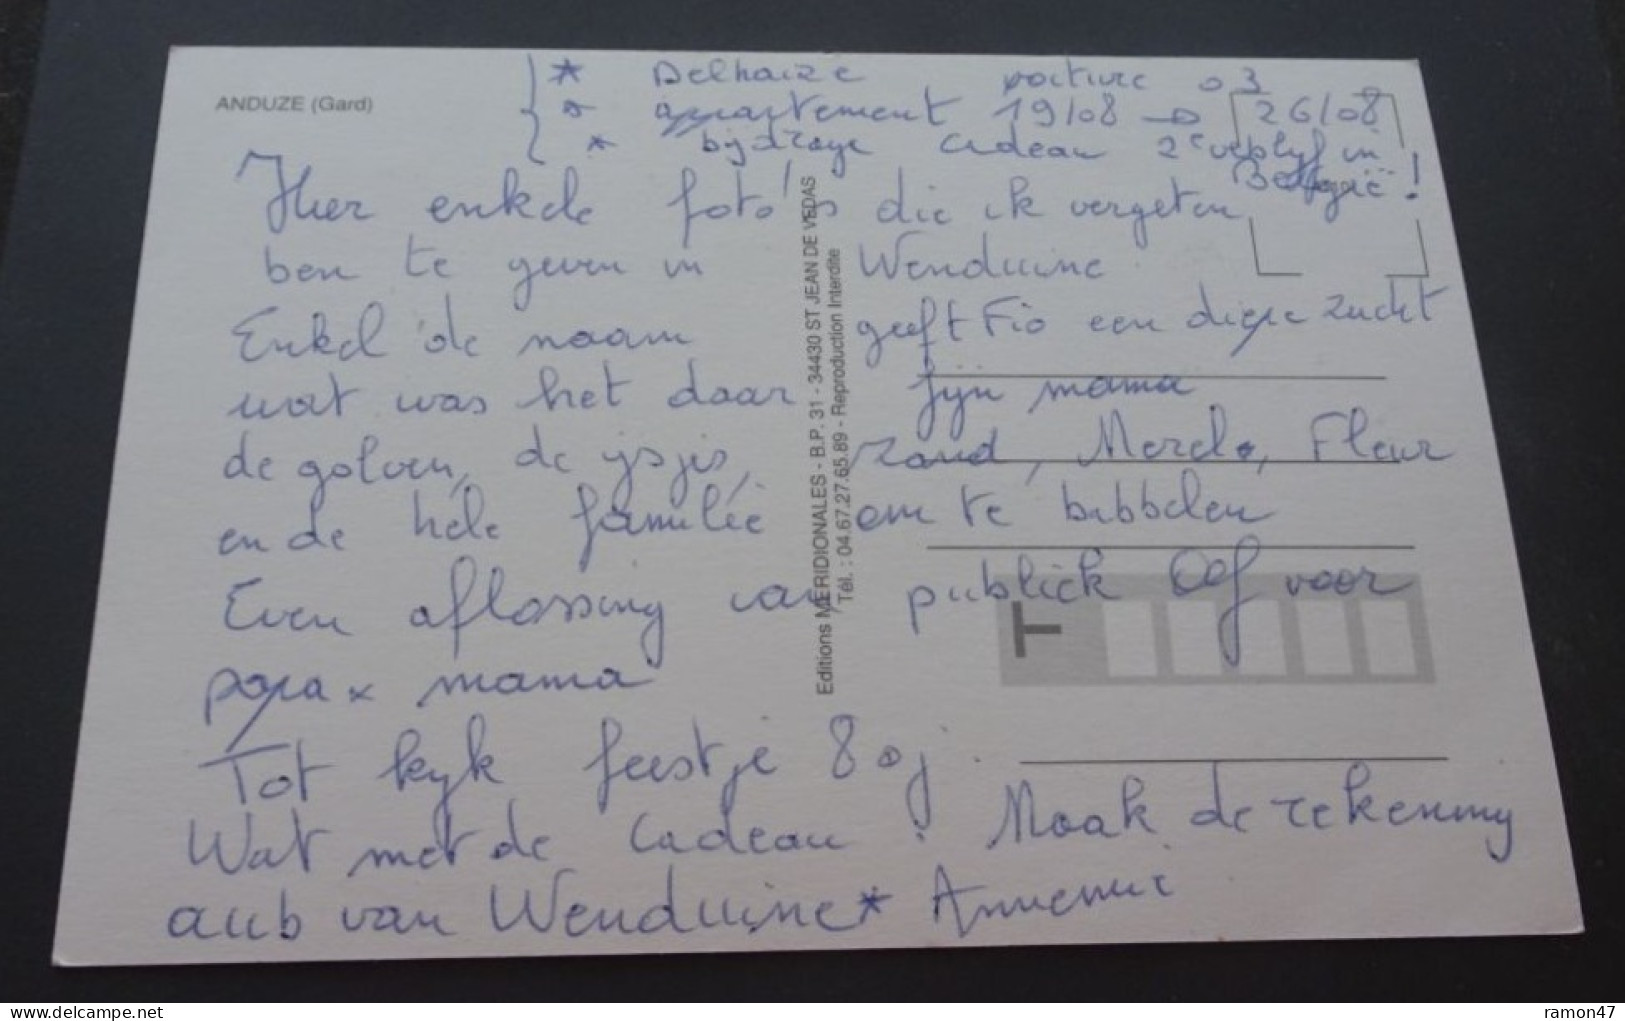 ANDUZE (Gard)
* Delhaize voiture 03
* appartement 19/08 → 26/08
* bijdrage cadeau 2e verblijf in
België !
Hier enkele foto's die ik vergeten
ben te geven in Wenduine
Enkel de naam geeft Fio een diepe zucht
wat was het daar fijn mama
de golven, de ijsjes, zand, Merel, Fleur
en de hele familie om te babbelen
Even aflossing van publiek Oef voor
papa x mama
Tot kijk feestje 80j.
Wat met de Cadeau ! Maak de rekening
aub van Wenduine* Annemie
Editions MERIDIONALES - B.P. 31 - 34430 ST JEAN DE VEDAS
Tél. : 04.67.27.65.89 - Reproduction Interdite
T
delcampe.net
ramon47